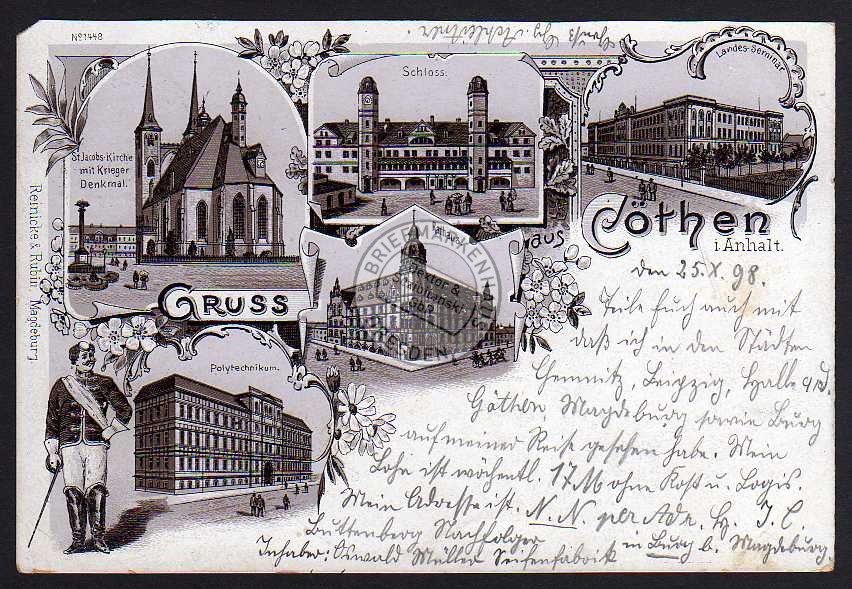 No 1448
Schloss.
Landes-Seminar
St Jacobs-Kirche
mit Krieger
Denkmal.
Rathaus.
GRUSS
aus
Cöthen
i. Anhalt.
Polytechnikum.
Reinicke & Rubin, Magdeburg.
BRIEFMARKEN
DRESDEN
den 25.X.98.
Teile Euch auch mit
daß ich in den Städten
Chemnitz, Leipzig, Halle und
Göthen, Magdeburg sowie Burg
auf meiner Reise gesehen habe. Mein
Lohn ist wöchentl. 17 M ohne Kost u. Logis.
Mein Adresse ist. N. N. per Adr. J. C.
Buttenberg Nachfolger
Inhaber: Oswald Müller Seifenfabrik in Burg b. Magdeburg.